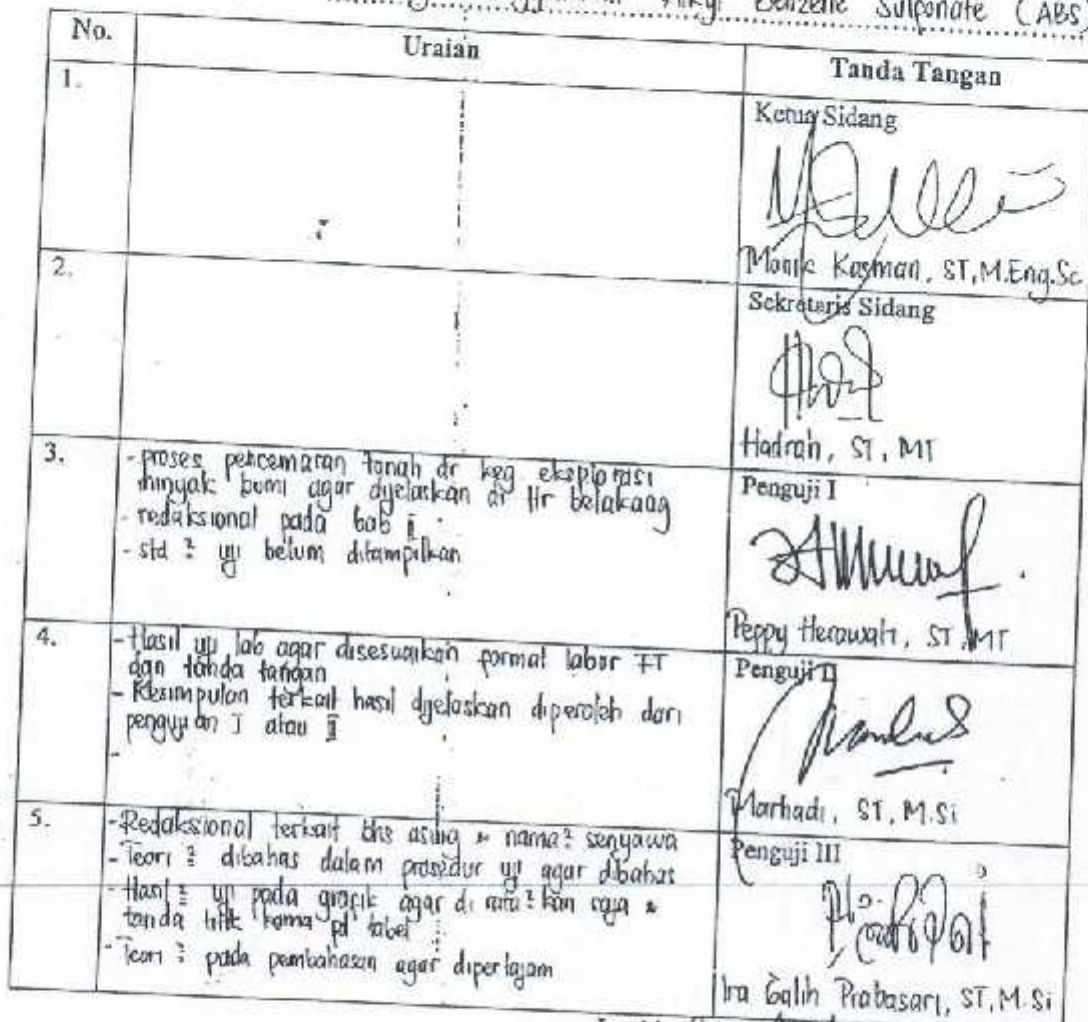 Alkyl Benzene Sulponate (ABS)
No.
Uraian
Tanda Tangan
1.
Ketua Sidang
Monik Kasman, ST, M.Eng.Sc
2.
Sekretaris Sidang
Hadrah, ST, MT
3.
- proses pencemaran tanah dr keg eksplorasi
minyak bumi agar dijelaskan di ltr belakang
- redaksional pada bab II
- std ² uji belum ditampilkan
Penguji I
Peppy Herawati, ST, MT
4.
- Hasil uji lab agar disesuaikan format labor FT
dan tanda tangan
- Kesimpulan terkait hasil dijelaskan diperoleh dari
pengujian I atau II
-
Penguji II
Marhadi, ST, M.Si
5.
- Redaksional terkait bhs asing & nama² senyawa
- Teori ² dibahas dalam prosedur uji agar dibahas
- Hasil ² uji pada grafik agar di rata² kan saja &
tanda titik koma pd tabel
- Teori ² pada pembahasan agar dipertajam
Penguji III
Ira Galih Prabasari, ST, M.Si